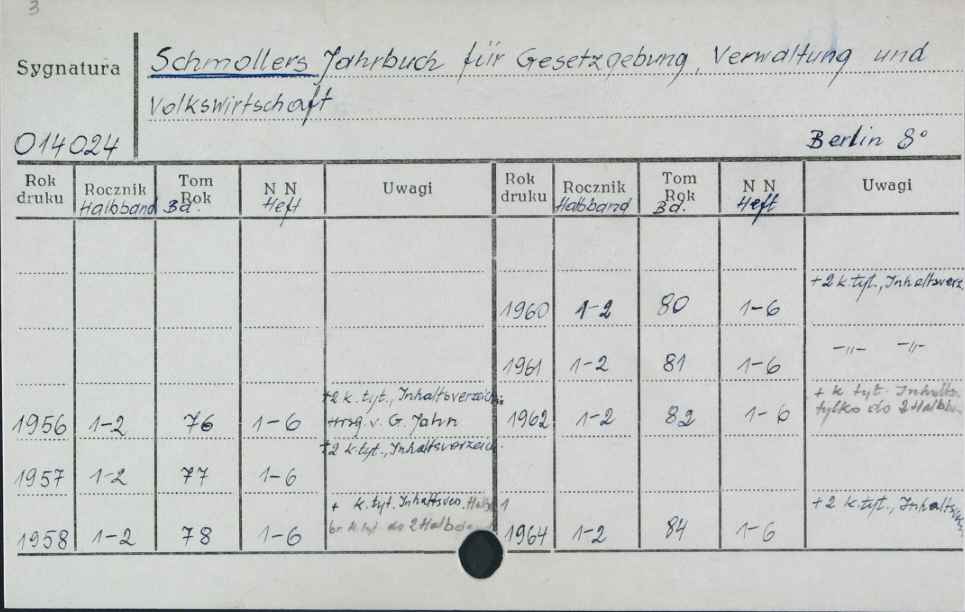 3
Sygnatura
Schmollers Jahrbuch für Gesetzgebung, Verwaltung und
Volkswirtschaft
014024
Berlin 8°
Rok druku Rocznik Halbband Tom Rok Bd. N N Heft Uwagi Rok druku Rocznik Halbband Tom Rok Bd. N N Heft Uwagi
+2 k. tyt., Inhaltsverz.
1960 1-2 80 1-6
1961 1-2 81 1-6 -"- -"-
+2 k. tyt., Inhaltsverzeich.
1956 1-2 76 1-6 Hrsg. v. G. Jahn
+ k. tyt. Inhalts
1962 1-2 82 1-6 tylko do 2 Halbb.
+2 k. tyt., Inhaltsverzeich.
1957 1-2 77 1-6
+ k. tyt. Inhaltsver. Halbb 1
1958 1-2 78 1-6 br. k. tyt. do 2 Halbband
+2 k. tyt., Inhalts
1964 1-2 84 1-6